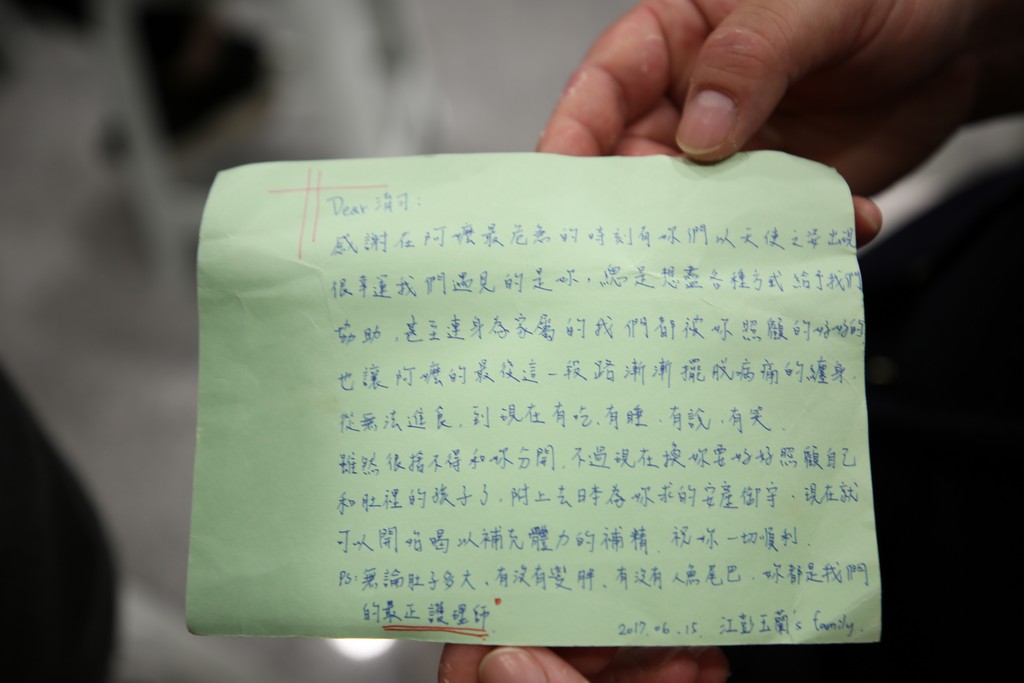 Dear 湞可:
感謝在阿嬤最危急的時刻有妳們以天使之姿出現
很幸運我們遇見的是妳,總是想盡各種方式給予我們
協助,甚至連身為家屬的我們都被妳照顧的好好的
也讓阿嬤的最後這一段路漸漸擺脫病痛的纏身.
從無法進食.到現在有吃.有睡.有說.有笑.
雖然很捨不得和妳分開.不過現在換妳要好好照顧自己
和肚裡的孩子了.附上去日本為妳求的安產御守.現在就
可以開始喝以補充體力的補精.祝妳一切順利.
PS:無論肚子多大.有沒有變胖.有沒有人魚尾巴.妳都是我們
的最正護理師.
2017.06.15. 江彭玉蘭's family.